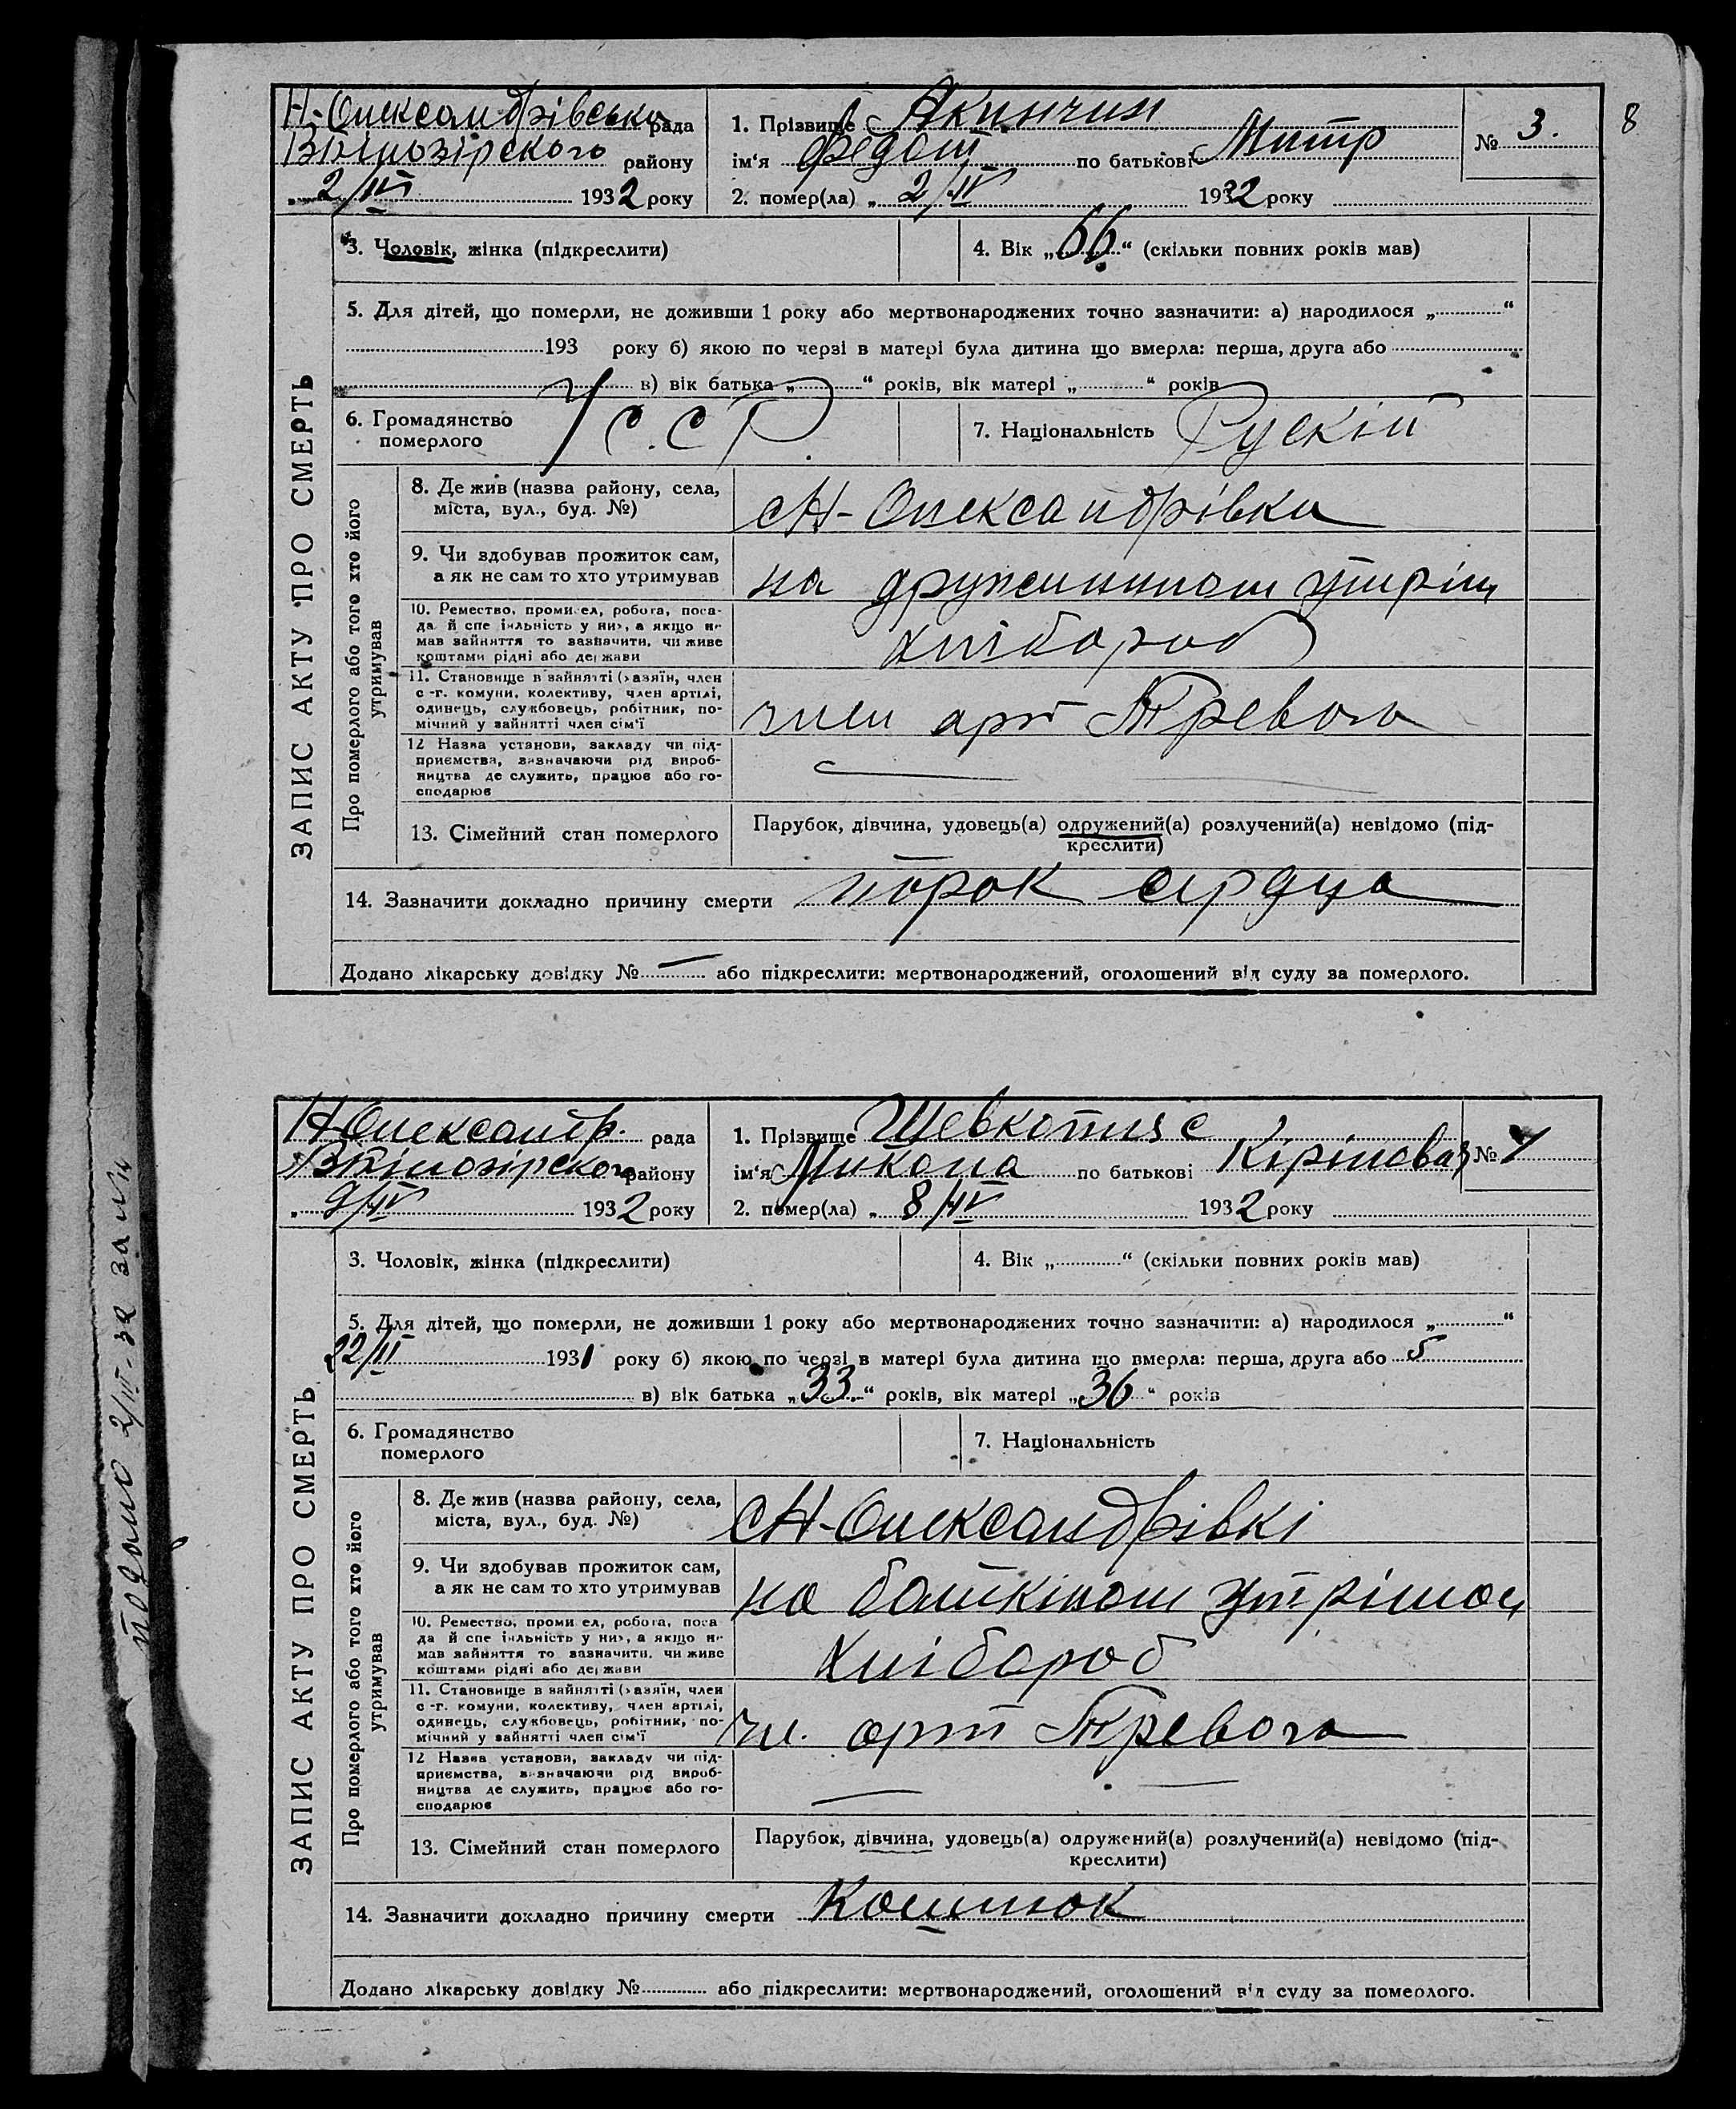 8
Н-Олександрівська рада
Втілозірского району
„ 2/IV 1932 року
1. Прізвище Акинчин
ім'я Федот по батькові Митр
2. помер(ла) „ 2/IV 1932 року
№ 3.
ЗАПИС АКТУ ПРО СМЕРТЬ
3. Чоловік, жінка (підкреслити)
4. Вік „ 66 “ (скільки повних років мав)
5. Для дітей, що померли, не доживши 1 року або мертвонароджених точно зазначити: а) народилося „ “
193 року б) якою по черзі в матері була дитина що вмерла: перша, друга або
в) вік батька „ “ років, вік матері „ “ років
6. Громадянство
померлого
УССР
7. Національність Рускій
Про померлого або того хто його
утримував
8. Де жив (назва району, села,
міста, вул., буд. №)
с Н-Олександрівка
9. Чи здобував прожиток сам,
а як не сам то хто утримував
на дружинном утрім
10. Ремество, промисел, робота, поса-
да й спеціальність у них, а якщо не
мав зайняття то зазначити, чи живе
коштами рідні або держави
хлібороб
11. Становище в зайнятті (хазяїн, член
с.-г. комуни, колективу, член артілі,
одинець, службовець, робітник, по-
мічний у зайнятті член сім'ї
член арт Тревога
12 Назва установи, закладу чи під-
приємства, зазначаючи рід вироб-
ництва де служить, працює або го-
сподарює
13. Сімейний стан померлого
Парубок, дівчина, удовець(а) одружений(а) розлучений(а) невідомо (під-
креслити)
14. Зазначити докладно причину смерти порок сердца
Додано лікарську довідку № — або підкреслити: мертвонароджений, оголошений від суду за померлого.
Н Олександр. рада
Втілозірского району
„ 9/IV 1932 року
1. Прізвище Шевкопляс
ім'я Микола по батькові Кірілова
2. помер(ла) „ 8/IV 1932 року
№ 4
ЗАПИС АКТУ ПРО СМЕРТЬ
3. Чоловік, жінка (підкреслити)
4. Вік „ “ (скільки повних років мав)
5. Для дітей, що померли, не доживши 1 року або мертвонароджених точно зазначити: а) народилося „ “
22/II 1931 року б) якою по черзі в матері була дитина що вмерла: перша, друга або 5
в) вік батька „ 33 “ років, вік матері „ 36 “ років
6. Громадянство
померлого
7. Національність
Про померлого або того хто його
утримував
8. Де жив (назва району, села,
міста, вул., буд. №)
с Н-Олександрівкі
9. Чи здобував прожиток сам,
а як не сам то хто утримував
на батькіном утріман
10. Ремество, промисел, робота, поса-
да й спеціальність у них, а якщо не
мав зайняття то зазначити, чи живе
коштами рідні або держави
хлібороб
11. Становище в зайнятті (хазяїн, член
с.-г. комуни, колективу, член артілі,
одинець, службовець, робітник, по-
мічний у зайнятті член сім'ї
чл. арт Тревога
12 Назва установи, закладу чи під-
приємства, зазначаючи рід вироб-
ництва де служить, працює або го-
сподарює
13. Сімейний стан померлого
Парубок, дівчина, удовець(а) одружений(а) розлучений(а) невідомо (під-
креслити)
14. Зазначити докладно причину смерти Кошлюк
Додано лікарську довідку № або підкреслити: мертвонароджений, оголошений від суду за померлого.